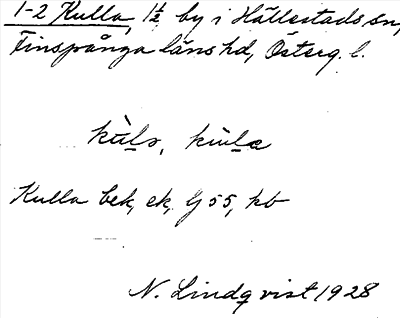 1-2 Kulla, 1½ by i Hällestads sn,
Finspånga läns hd, Österg. l.
kùlₔ, kùlæ
Kulla bek, ek. G 55, kb
N. Lindqvist 1928